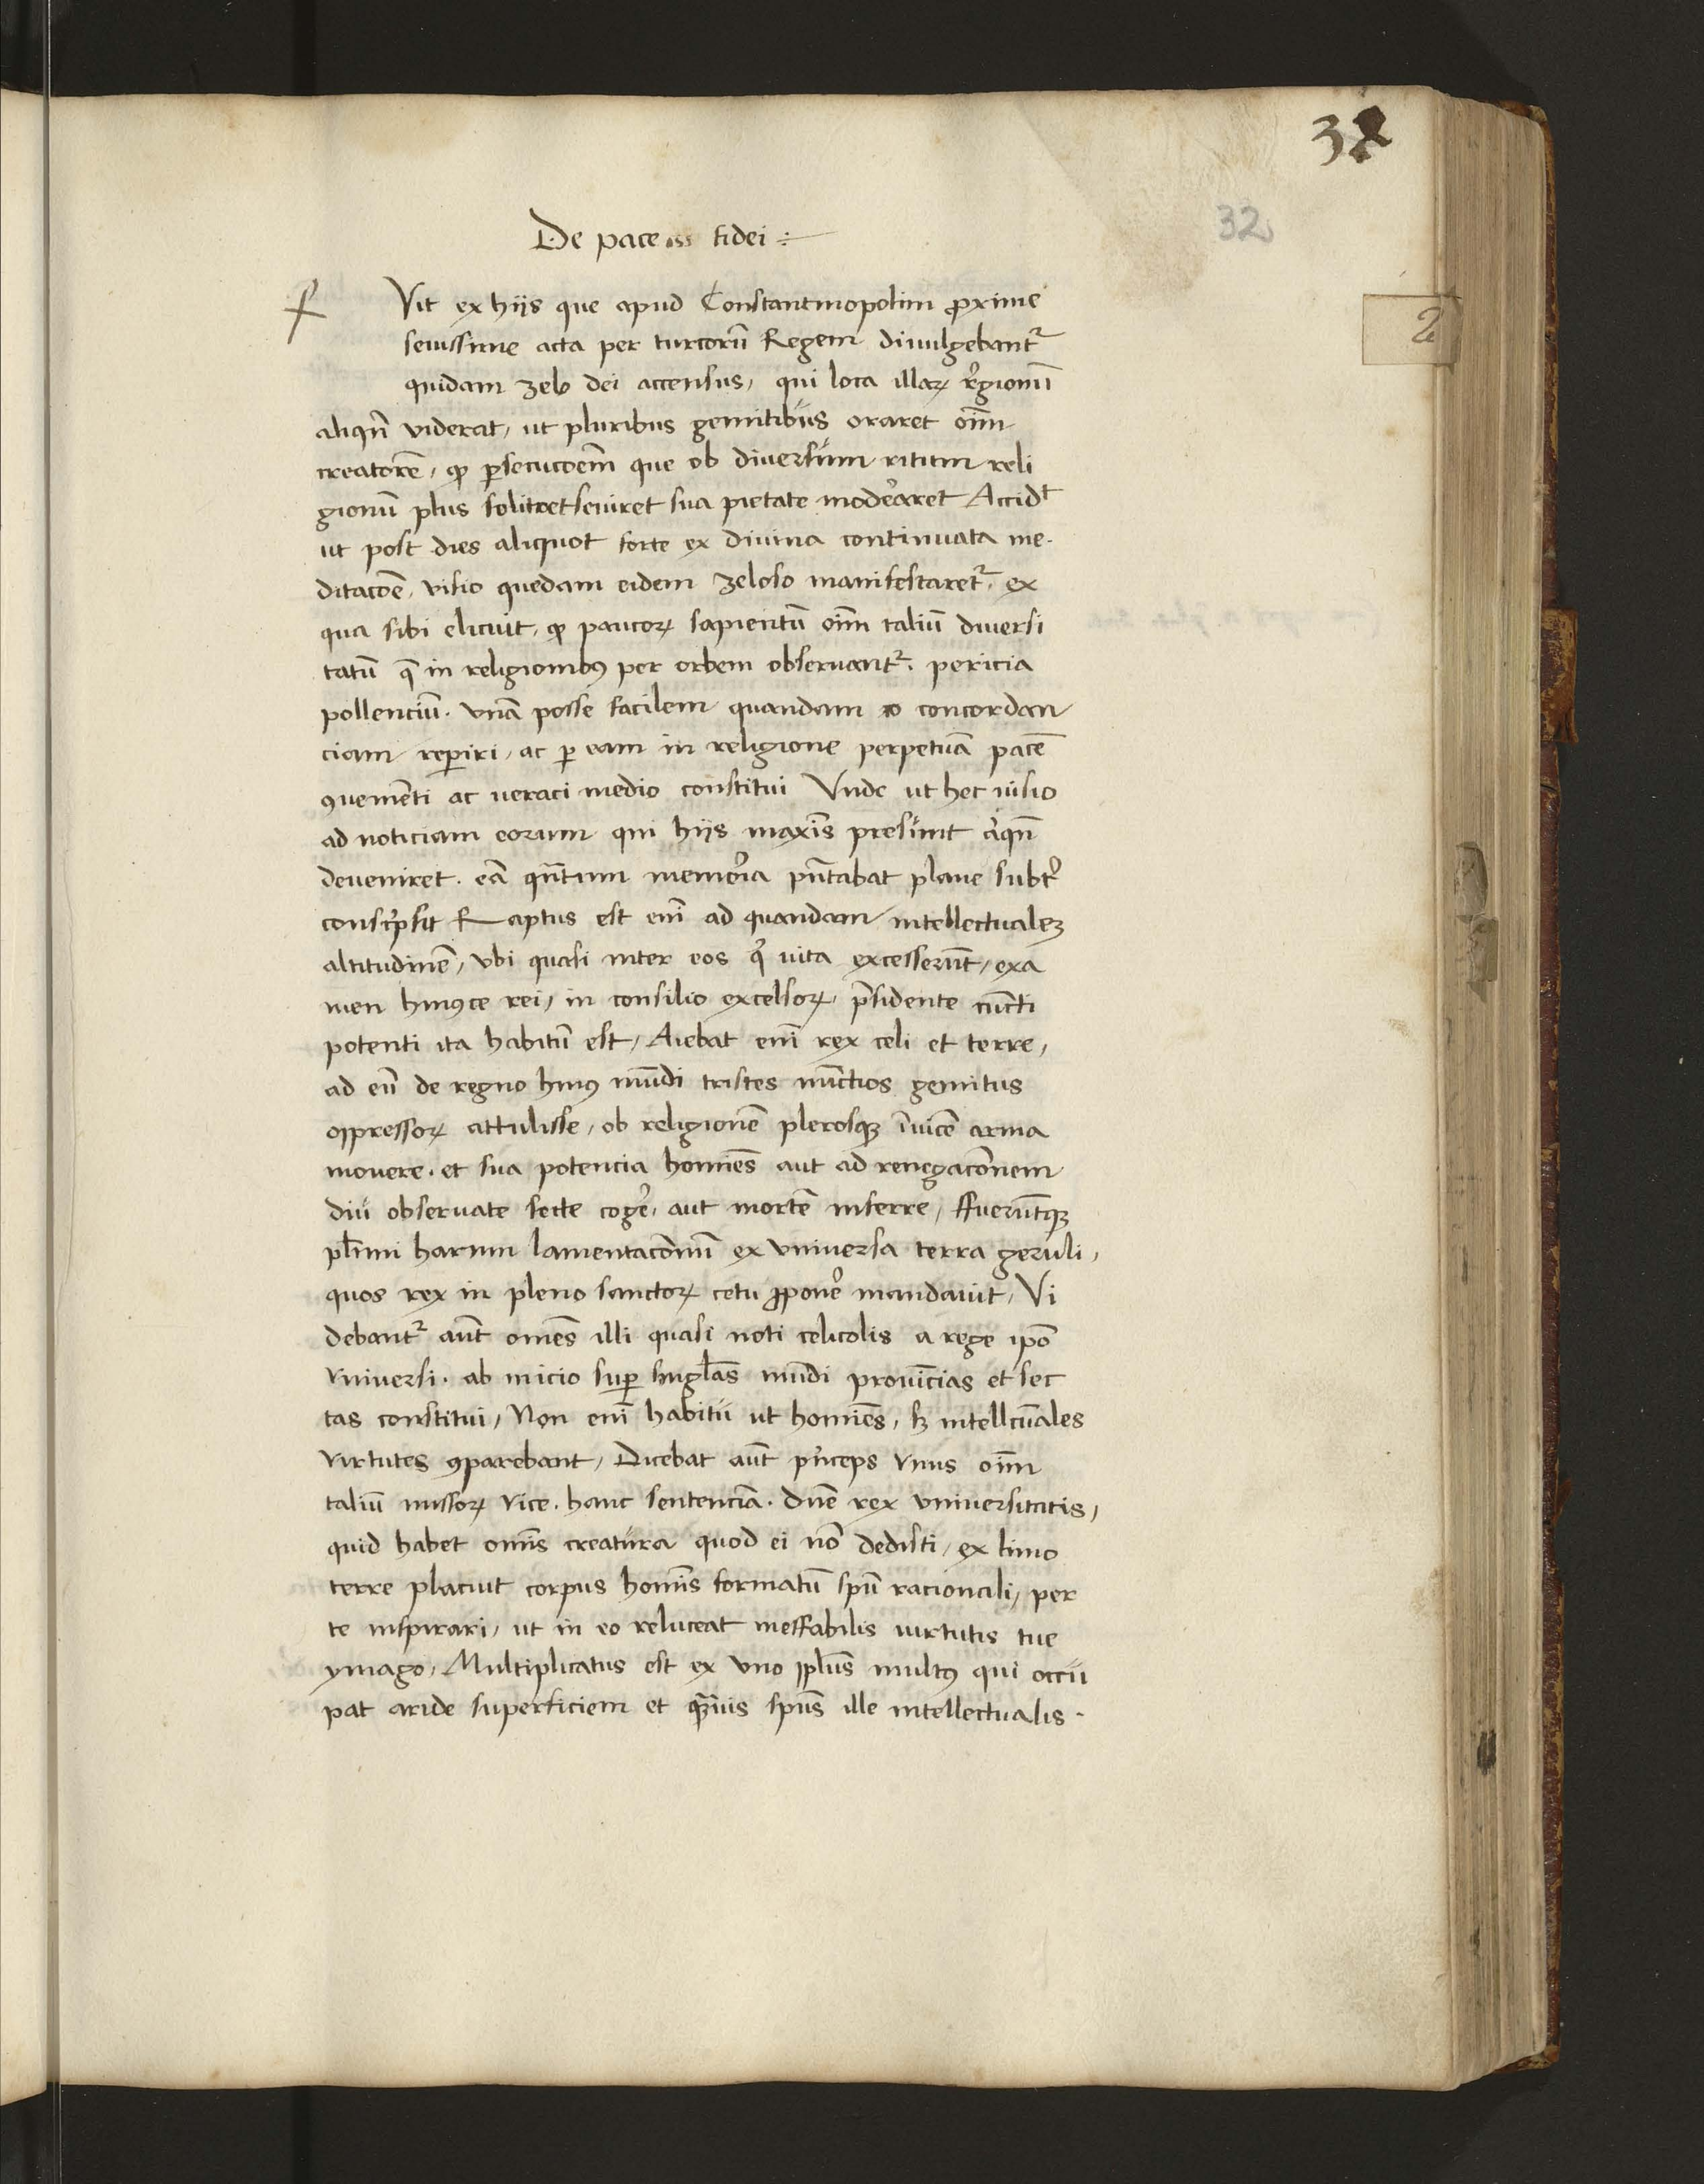 32
32
De pace fidei
f Vit ex hijs que apud Constantinopolim ꝓxime
seuissime acta per turcorū Regem diuulgebantr̄
quidam zelo dei accensus, qui loca illaꝝ regionū
aliqn̄ viderat, ut pluribus gemitibus oraret oīm
creatorē, ꝙ ꝑsecucōem que ob diuersum ritum reli
gionū plus solito seuiret sua pietate moderaret Accidt
ut post dies aliquot forte ex diuina continuata me-
ditacōe, visio quedam eidem zeloso manifestaretr̄, ex
qua sibi elicuit, ꝙ paucoꝝ sapientū oīm taliū diuersi
tatū q̄ in religionibꝰ per orbem obseruantr̄. pericia
pollenciū. vnā posse facilem quandam concordan
ciam reperiri, ac ꝑ eam in religione perpetuā pacē
ꝯuenienti ac ueraci medio constitui Vnde ut hec uisio
ad noticiam eorum qui hijs maxīs presunt aliqn̄
deueniret. eā qn̄tum memoria pn̄tabat plane subter
conscripsit Raptus est enī ad quandam intellectualeꝫ
altitudinē, vbi quasi inter eos q̇ uita excesserūt, exa
men huiꝰce rei, in consilio excelsoꝝ, p̄sidente cuncti
potenti ita habitū est, Aiebat enī rex celi et terre,
ad eū de regno huiꝰ mūdi tristes nūctios gemitus
oppressoꝝ attulisse, ob religionē plerosqꝫ īuicē arma
mouere. et sua potencia homīes aut ad renegacōnem
diu obseruate secte cogere, aut mortē inferre, ffuerūtqꝫ
plīmi harum lamentacōnū ex vniuersa terra geruli,
quos rex in pleno sanctoꝝ cetu ꝓponere mandauit, Vi
debantr̄ aūt omēs illi quasi noti celicolis a rege ipō
vniuersi. ab inicio suꝑ singl̄as mūdi prouīcias et sec
tas constitui, Non enī habitu ut homīes, sꝫ intellcūales
virtutes ꝯparebant, Dicebat aūt pͥnceps vnus oīm
taliū missoꝝ vice. hanc sentenciā. dn̄e rex vniuersitatis,
quid habet omīs creatura quod ei nō dedisti, ex limo
terre placuit corpus homīs formatū spū racionali, per
te inspirari, ut in eo reluceat ineffabilis uirtutis tue
ymago, Multiplicatus est ex vno ppl̄us multꝰ qui occu
pat aride superficiem et qꝫuis spūs ille intellectualis.